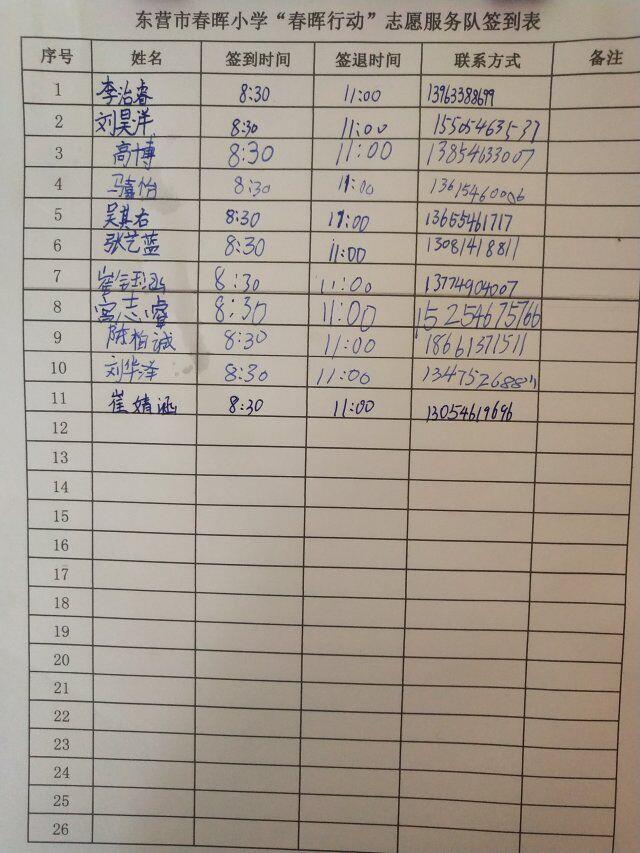 东营市春晖小学“春晖行动”志愿服务队签到表
序号 姓名 签到时间 签退时间 联系方式 备注
1 李治睿 8:30 11:00 13963388699
2 刘昊洋 8:30 11:00 15505463537
3 高博 8:30 11:00 13854633007
4 马嘉怡 8:30 11:00 13615460006
5 吴其右 8:30 11:00 13655461717
6 张艺蓝 8:30 11:00 13081418811
7 8:30 11:00 13774904007
8 志睿 8:30 11:00 15254675766
9 陈柏诚 8:30 11:00 18661371511
10 刘华泽 8:30 11:00
11 崔婧涵 8:30 11:00 13054619696
12
13
14
15
16
17
18
19
20
21
22
23
24
25
26